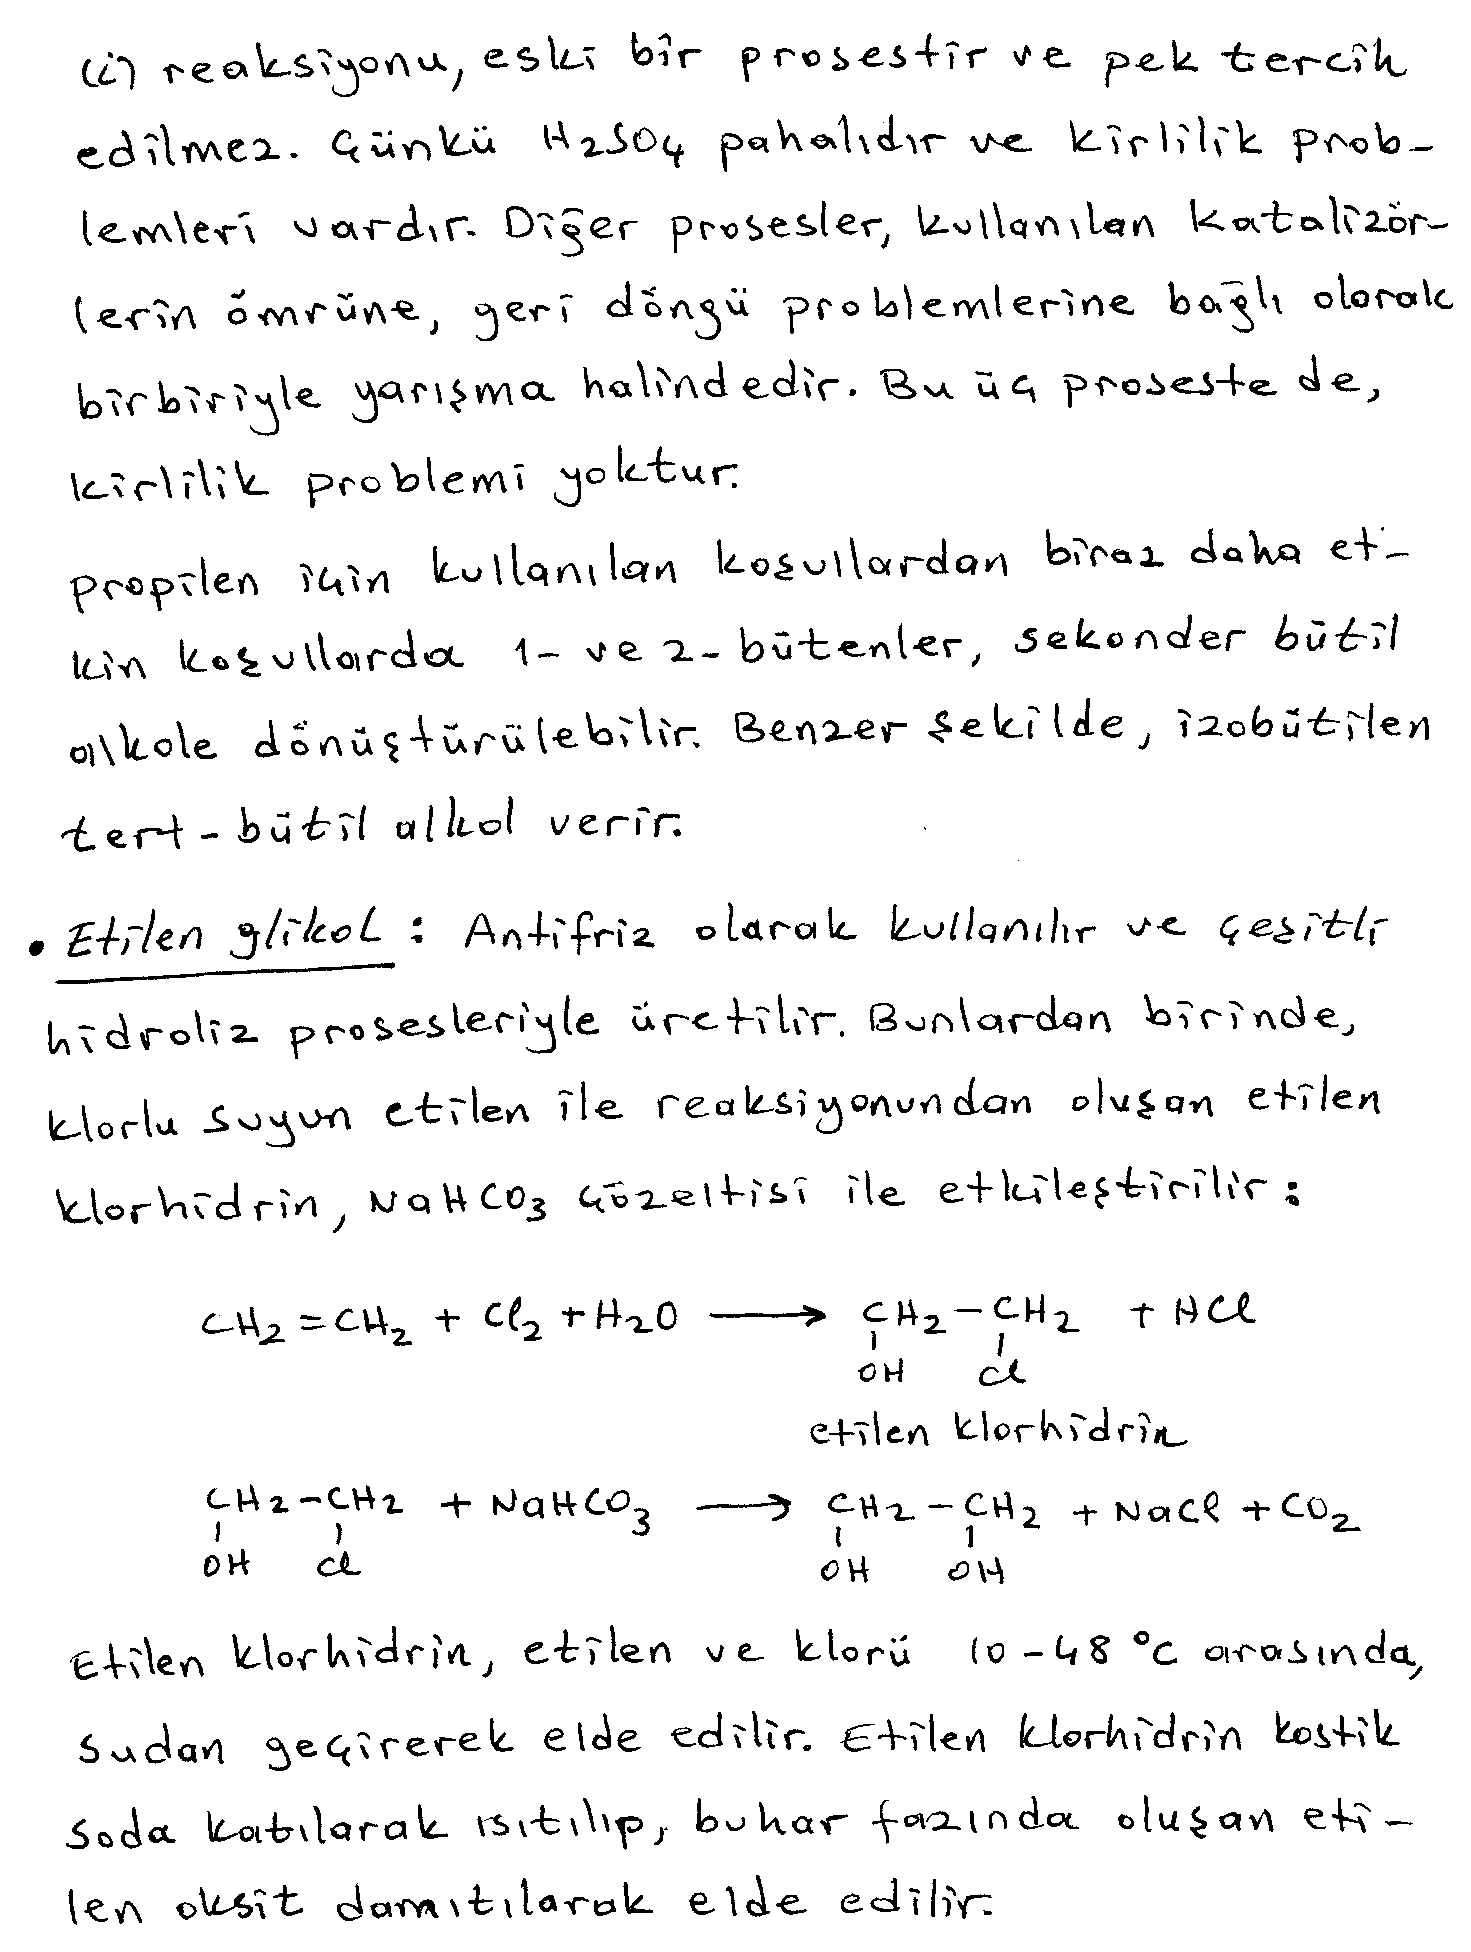 (i) reaksiyonu, eski bir prosestir ve pek tercih
edilmez. Çünkü H2SO4 pahalıdır ve kirlilik prob-
lemleri vardır. Diğer prosesler, kullanılan katalizör-
lerin ömrüne, geri döngü problemlerine bağlı olarak
birbiriyle yarışma halindedir. Bu üç proseste de,
kirlilik problemi yoktur.
Propilen için kullanılan koşullardan biraz daha et-
kin koşullarda 1- ve 2-bütenler, sekonder bütil
alkole dönüştürülebilir. Benzer şekilde, izobütilen
tert-bütil alkol verir.
• Etilen glikol : Antifriz olarak kullanılır ve çeşitli
hidroliz prosesleriyle üretilir. Bunlardan birinde,
klorlu suyun etilen ile reaksiyonundan oluşan etilen
klorhidrin, NaHCO3 çözeltisi ile etkileştirilir :
CH2=CH2 + Cl2 + H2O ⟶ CH2-CH2 + HCl
OH Cl
etilen klorhidrin
CH2-CH2 + NaHCO3 ⟶ CH2-CH2 + NaCl + CO2
OH Cl OH OH
Etilen klorhidrin, etilen ve klorü 10-48 °C arasında,
sudan geçirerek elde edilir. Etilen klorhidrin kostik
soda katılarak ısıtılıp, buhar fazında oluşan eti-
len oksit damıtılarak elde edilir.